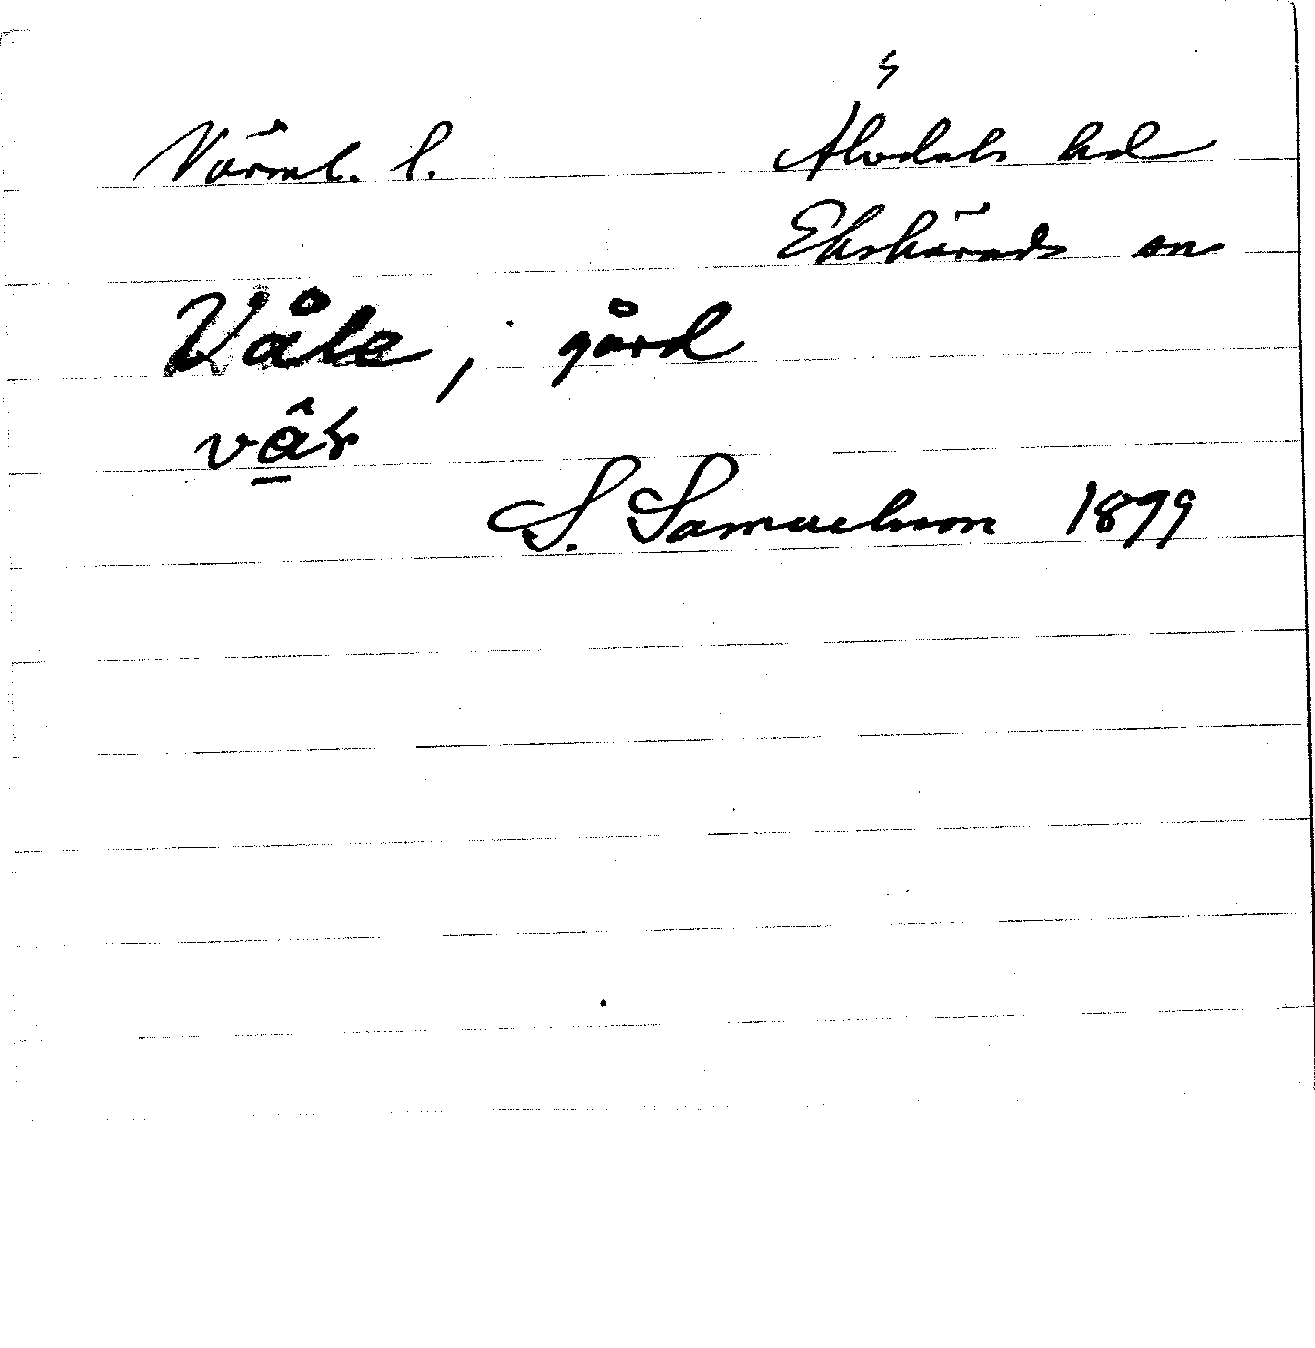 Värml. l. Älvdals hd
Ekshärads sn
Våle, gård
S. Samuelsson 1899